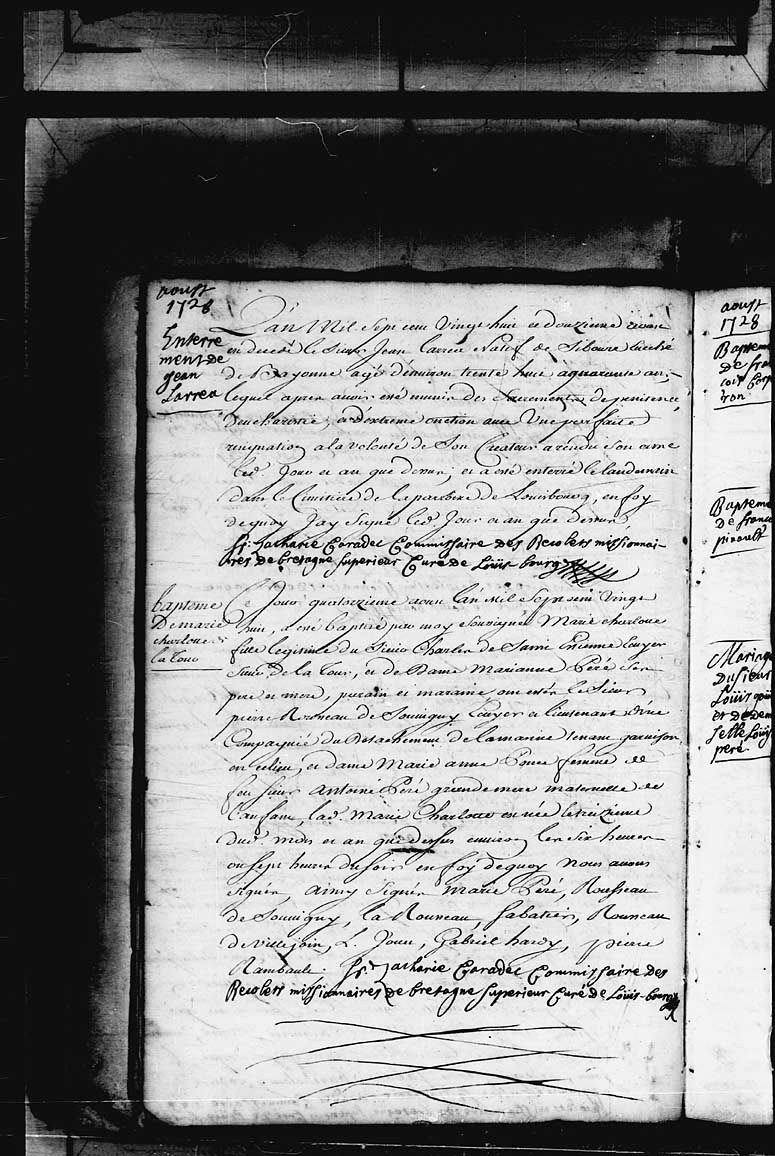 aoust
1728
Enterre
ment de
jean
Larrea
L'an Mil Sept cent Vingt huit et douzieme aoust
en decedé le Sieur Jean Larrea Natif de Siboure Eveché
de Bayonne agé d'environ trente huit a quarante ans,
lequel apres avoir eté munis des Sacrements de penitence,
d'eucharistie, et d'extreme onction avec Une parfaite
resignation a la volonté de Son Createur a rendu Son ame
led. Jour et an que dessus, et a eté enterré le landemain
dans le Cimitiere de la paroisse de Louisbourg, en foy
de quoy J'ay Signé led. Jour et an que dessus
fr. Zacharie Caradec Commissaire des Recolets missionnai-
res de bretagne Superieur Curé de Loüis-bourg
bapteme
De marie
charlotte
la Tour
Ce Jour quatorzieme aoust l'an Mil Sept cent Vingt
huit, a eté baptisé par moy Soussigné Marie charlotte
fille legitime du Sieur Charles de Saint Etienne Ecuyer
Sieur de la Tour, et de Dame Marianne Peré Ses
pere et mere, parain et maraine ont estés le Sieur
pierre Rousseau de Souvigny Ecuyer et lieutenant d'une
Compagnie du Detachement de la marine tenant garnison
en ce lieu, et dame Marie anne Ponce femme de
feu Sieur Antoine Peré grande mere maternelle de
l'enfant, lad. Marie Charlotte est née le treizieme
dud. mois et an que dessus environ les Six heures
ou Sept heures du Soir en foy de quoy Nous avons
Signés, ainsy Signés Marie Peré, Rousseau
de Souvigny, la Rousseau, Sabatier, Rousseau
de Villejoin, L. Jouet, Gabriel hardy, pierre
Rambault. fr. Zacharie Caradec Commissaire des
Recolets missionnaires de bretagne Superieur Curé de Loüis-bourg
aoust
1728
Bapteme
de fran
cois
Bapteme
De franc
pinault
Mariage
Du Sieur
Loüis
et De Dem
selle Loüis
peré